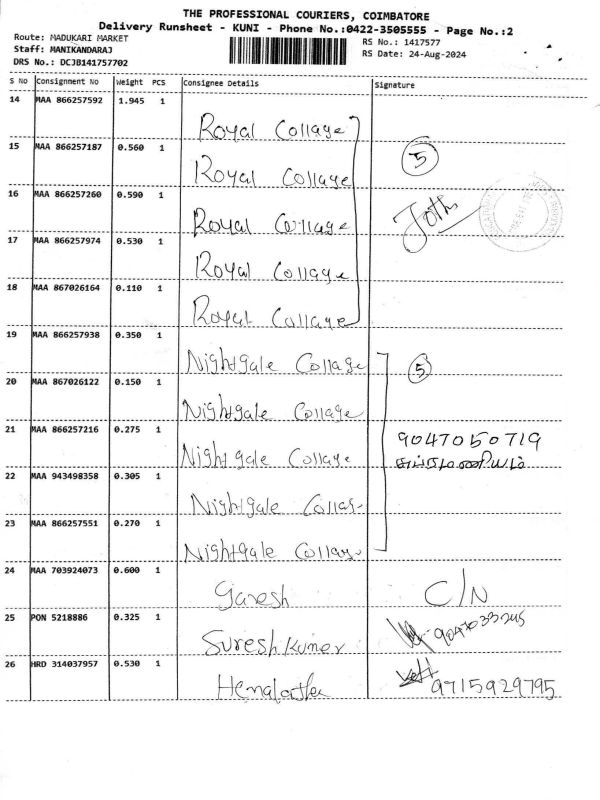 THE PROFESSIONAL COURIERS, COIMBATORE
Delivery Runsheet - KUNI - Phone No.:0422-3505555 - Page No.:2
Route: MADUKARI MARKET
Staff: MANIKANDARAJ
DRS No.: DCJB141757702
RS No.: 1417577
RS Date: 24-Aug-2024
S No Consignment No Weight PCS Consignee Details Signature
14 MAA 866257592 1.945 1 Royal Collage
15 MAA 866257187 0.560 1 Royal Collage 5
16 MAA 866257260 0.590 1 Royal Collage
17 MAA 866257974 0.530 1 Royal Collage
18 MAA 867026164 0.110 1 Royal Collage
19 MAA 866257938 0.350 1 Nightgale Collage 5
20 MAA 867026122 0.150 1 Nightgale Collage
21 MAA 866257216 0.275 1 Nightgale Collage 9047050719
22 MAA 943498358 0.305 1 Nightgale
23 MAA 866257551 0.270 1 Nightgale
24 MAA 703924073 0.600 1 Ganesh C/N
25 PON 5218886 0.325 1 Suresh Kumer
26 HRD 314037957 0.530 1 9715929795